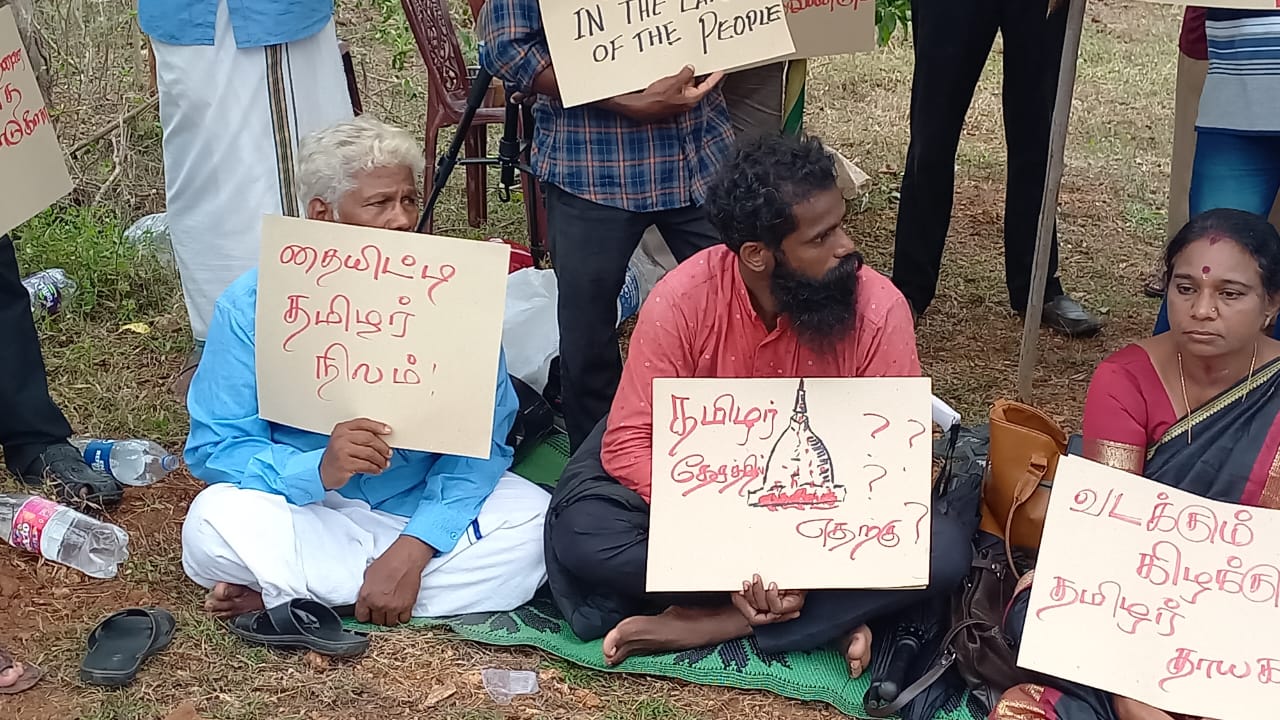 IN THE
OF THE PEOPLE
தையிட்டி
தமிழர்
நிலம்!
தமிழர்
தேசத்தில்
? ?
?
எதற்கு?
வடக்கும்
கிழக்கு
தமிழர்